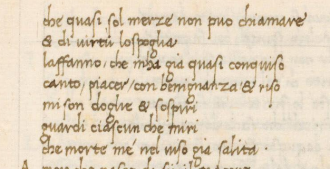 che quasi sol merze non puo chiamare
& di virtu lospoglia
laffanno, che mha gia quasi conquiso
canto, piacer, con benignanza & riso
mi son doglie & sospiri
guardi ciascun che miri
che morte me nel uiso gia salita